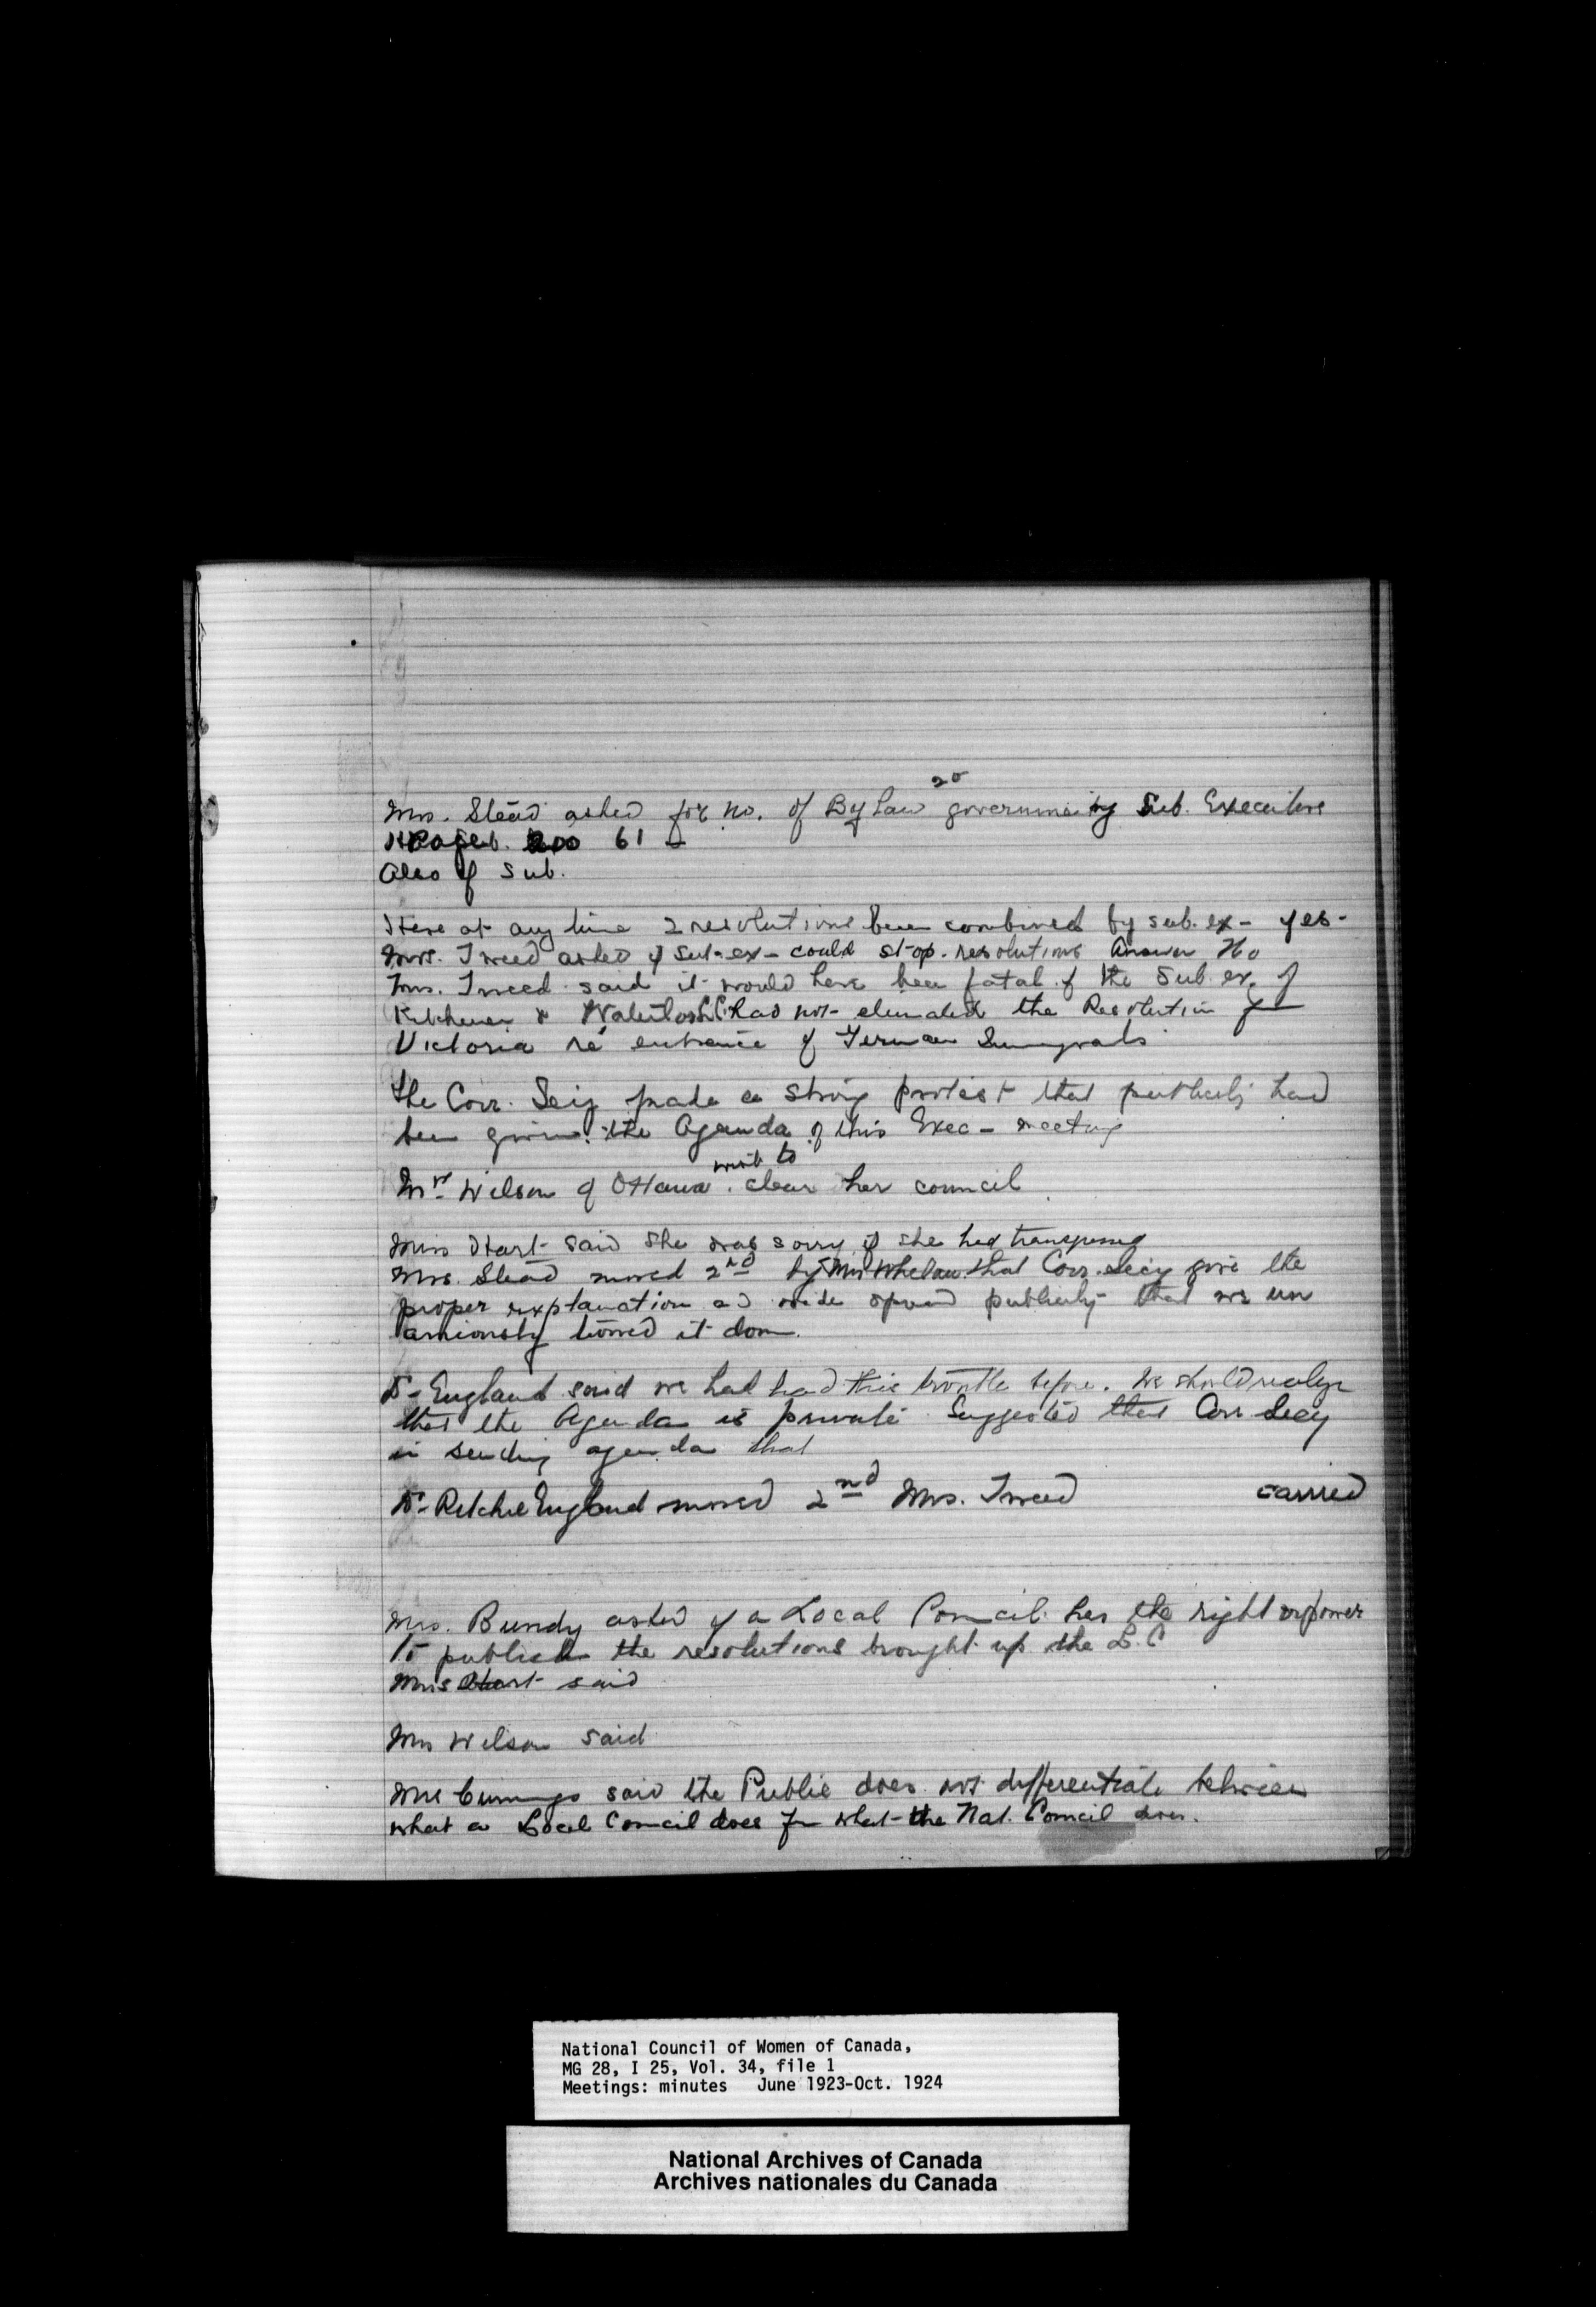 20
Mrs. Stead asked for no. of By Law governing Sub. Executive
61 -
Also of Sub.
Have at any time 2 resolutions been combined by sub. ex - yes -
Mrs. Tweed asked if Sub-ex - could stop. resolutions Answer No
Mrs. Tweed said it would have been fatal if the Sub. ex. of
Kitchener & Waterloo L.C. had not eliminated the Resolution fm
Victoria re entrance of German Immigrants
The Corr. Secy made a strong protest that publicity had
been given the Agenda of this Exec - meeting
wish to
Mrs Wilson of Ottawa clear her council
Miss Hart said she was sorry if she had
Mrs. Stead moved 2nd by Mrs Whelan that Corr. Secy give the
proper explanation as wide spread publicity that we un
amiously turned it down.
Dr. England said we had had this trouble before. We should realize
that the Agenda is private Suggested that Corr Secy
in sending agenda that
Dr. Ritchie England moved 2nd Mrs. Tweed carried
Mrs. Bundy asked if a Local Council has the right or power
to publish the resolutions brought up the L.C
Miss Hart said
Mrs Wilson said
Mrs Cummings said the Public does not differentiate between
what a Local Council does fm what the Nat. Council does.
National Council of Women of Canada,
MG 28, I 25, Vol. 34, file 1
Meetings: minutes June 1923-Oct. 1924
National Archives of Canada
Archives nationales du Canada